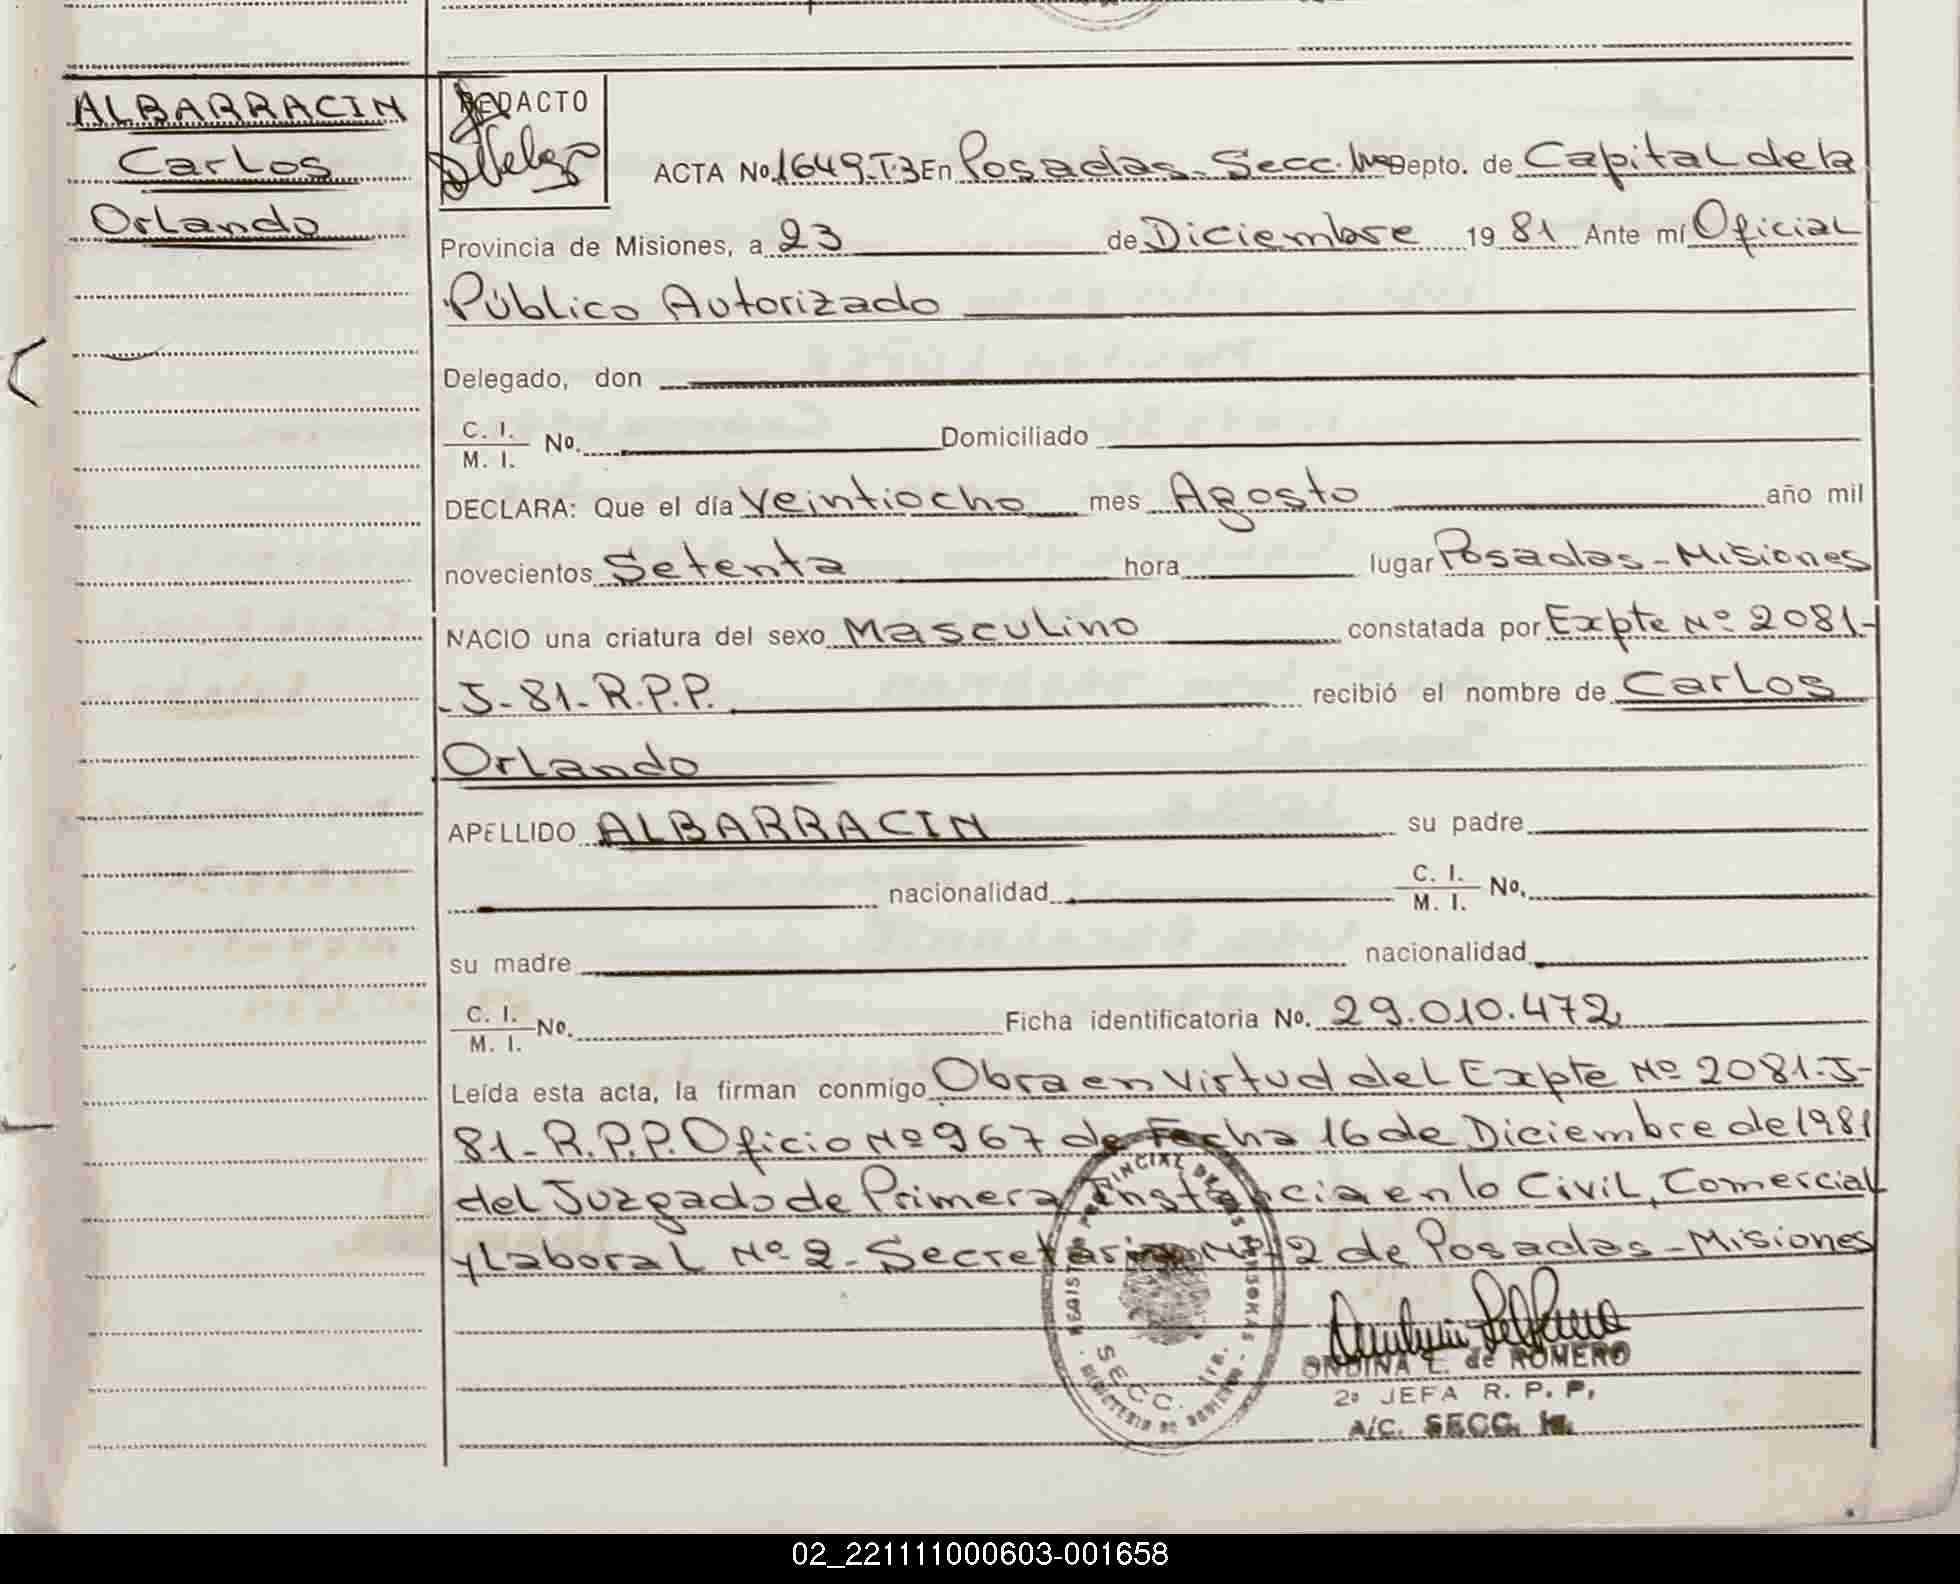 ALBARRACIN
Carlos
Orlando
REDACTO
ACTA No. 1649-T.3 En Posadas-Secc. 1ra Depto. de Capital de la
Provincia de Misiones, a 23 de Diciembre 19 81 Ante mí Oficial
Público Autorizado
Delegado, don
C. I.
M. I. No. Domiciliado
DECLARA: Que el día Veintiocho mes Agosto año mil
novecientos Setenta hora lugar Posadas-Misiones
NACIO una criatura del sexo Masculino constatada por Expte Nº 2081-
-J-81-R.P.P. recibió el nombre de Carlos
Orlando
APELLIDO ALBARRACIN su padre
nacionalidad C. I.
M. I. No.
su madre nacionalidad
C. I.
M. I. No. Ficha identificatoria No. 29.010.472
Leída esta acta, la firman conmigo Obra en Virtud del Expte Nº 2081-J-
81-R.P.P. Oficio Nº 967 de Fecha 16 de Diciembre de 1981
del Juzgado de Primera Instancia en lo Civil, Comercial
y Laboral Nº 2-Secretaria Nº 2 de Posadas-Misiones
REGISTRO PROVINCIAL DE LAS PERSONAS
SECC. 1ra.
MINISTERIO DE GOBIERNO
ONDINA L. de ROMERO
2ª JEFA R. P. P.
A/C. SECC. 1ra.
02_221111000603-001658